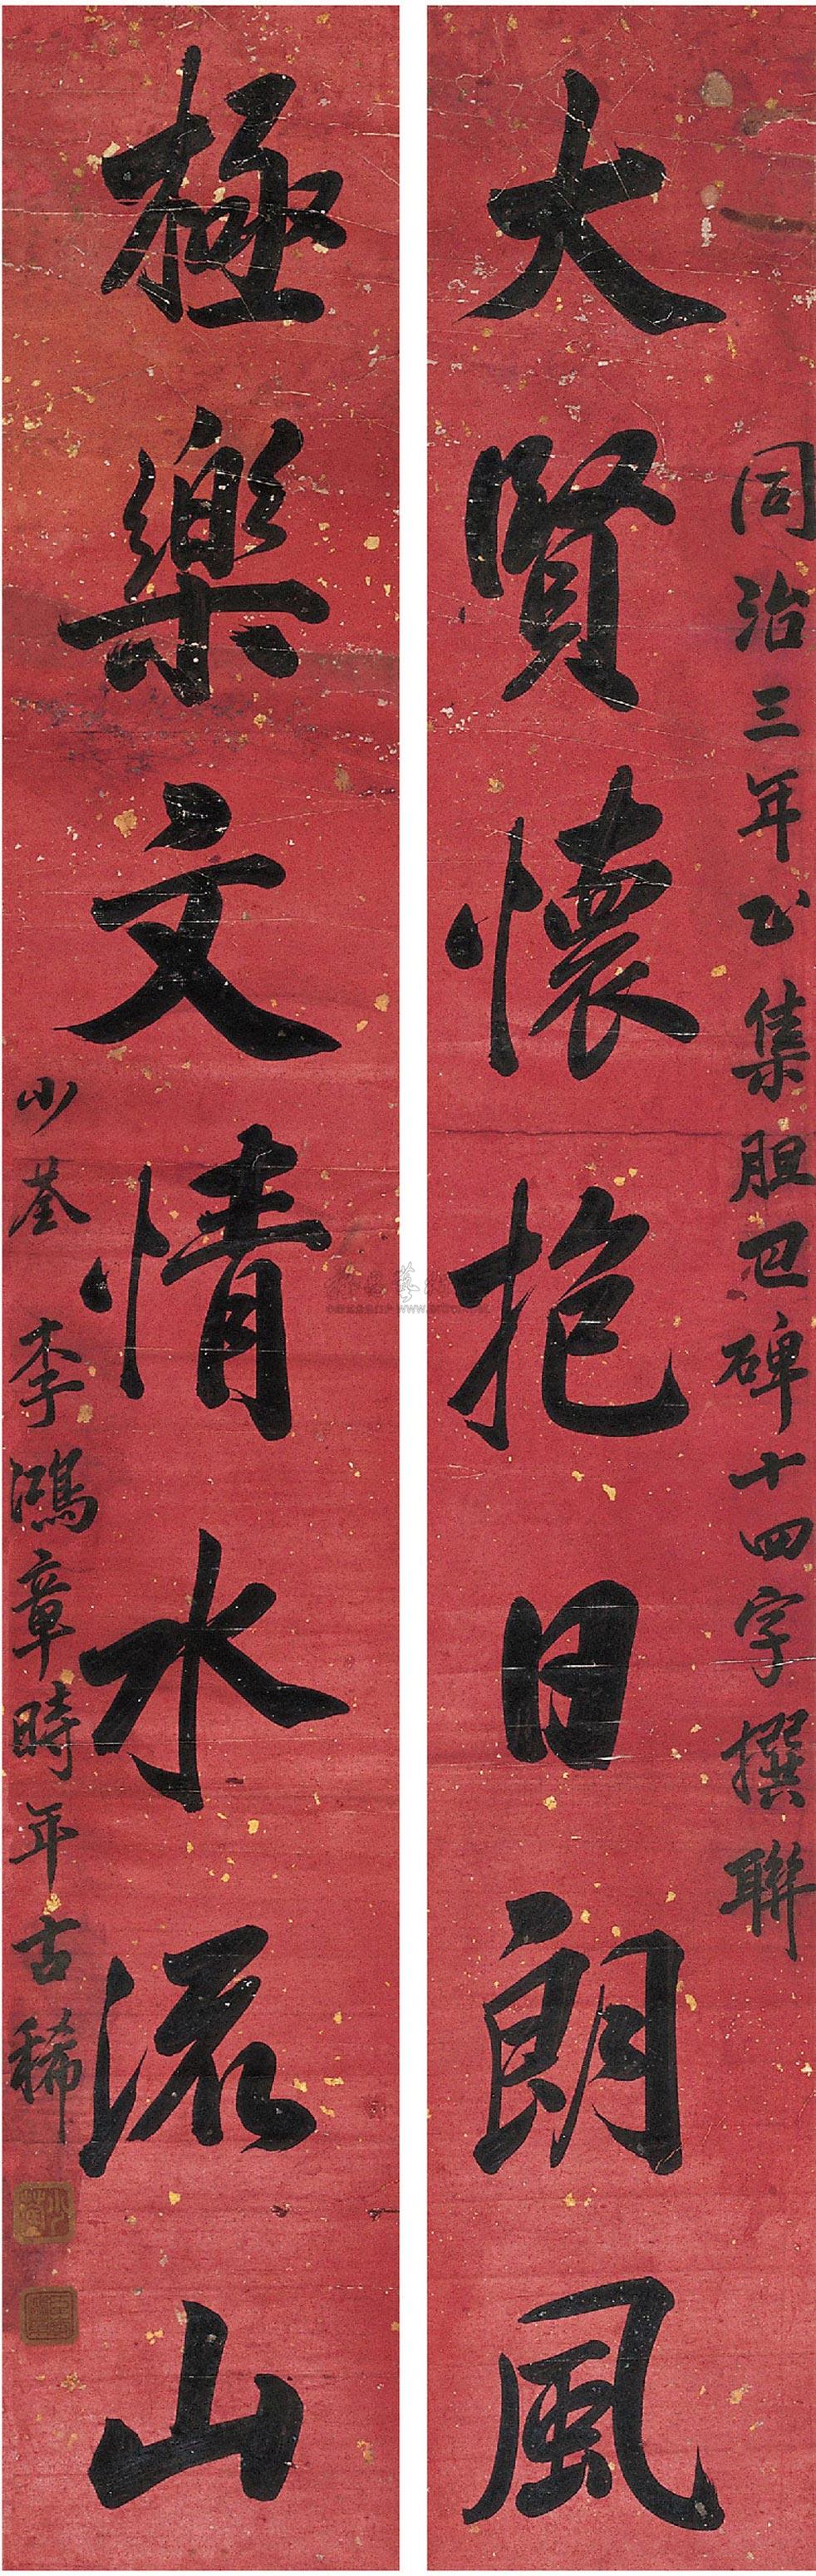 同治三年公集胆巴碑十四字撰聯
大賢懷抱日朗風
極樂文情水流山
少荃李鴻章時年古稀
少荃